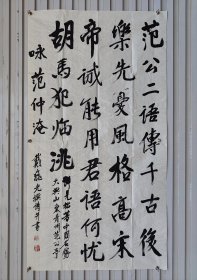 范公二語傳千古後
樂先憂風格高宋
帝誠能用君語何忧
胡馬犯临洮
咏范仲淹